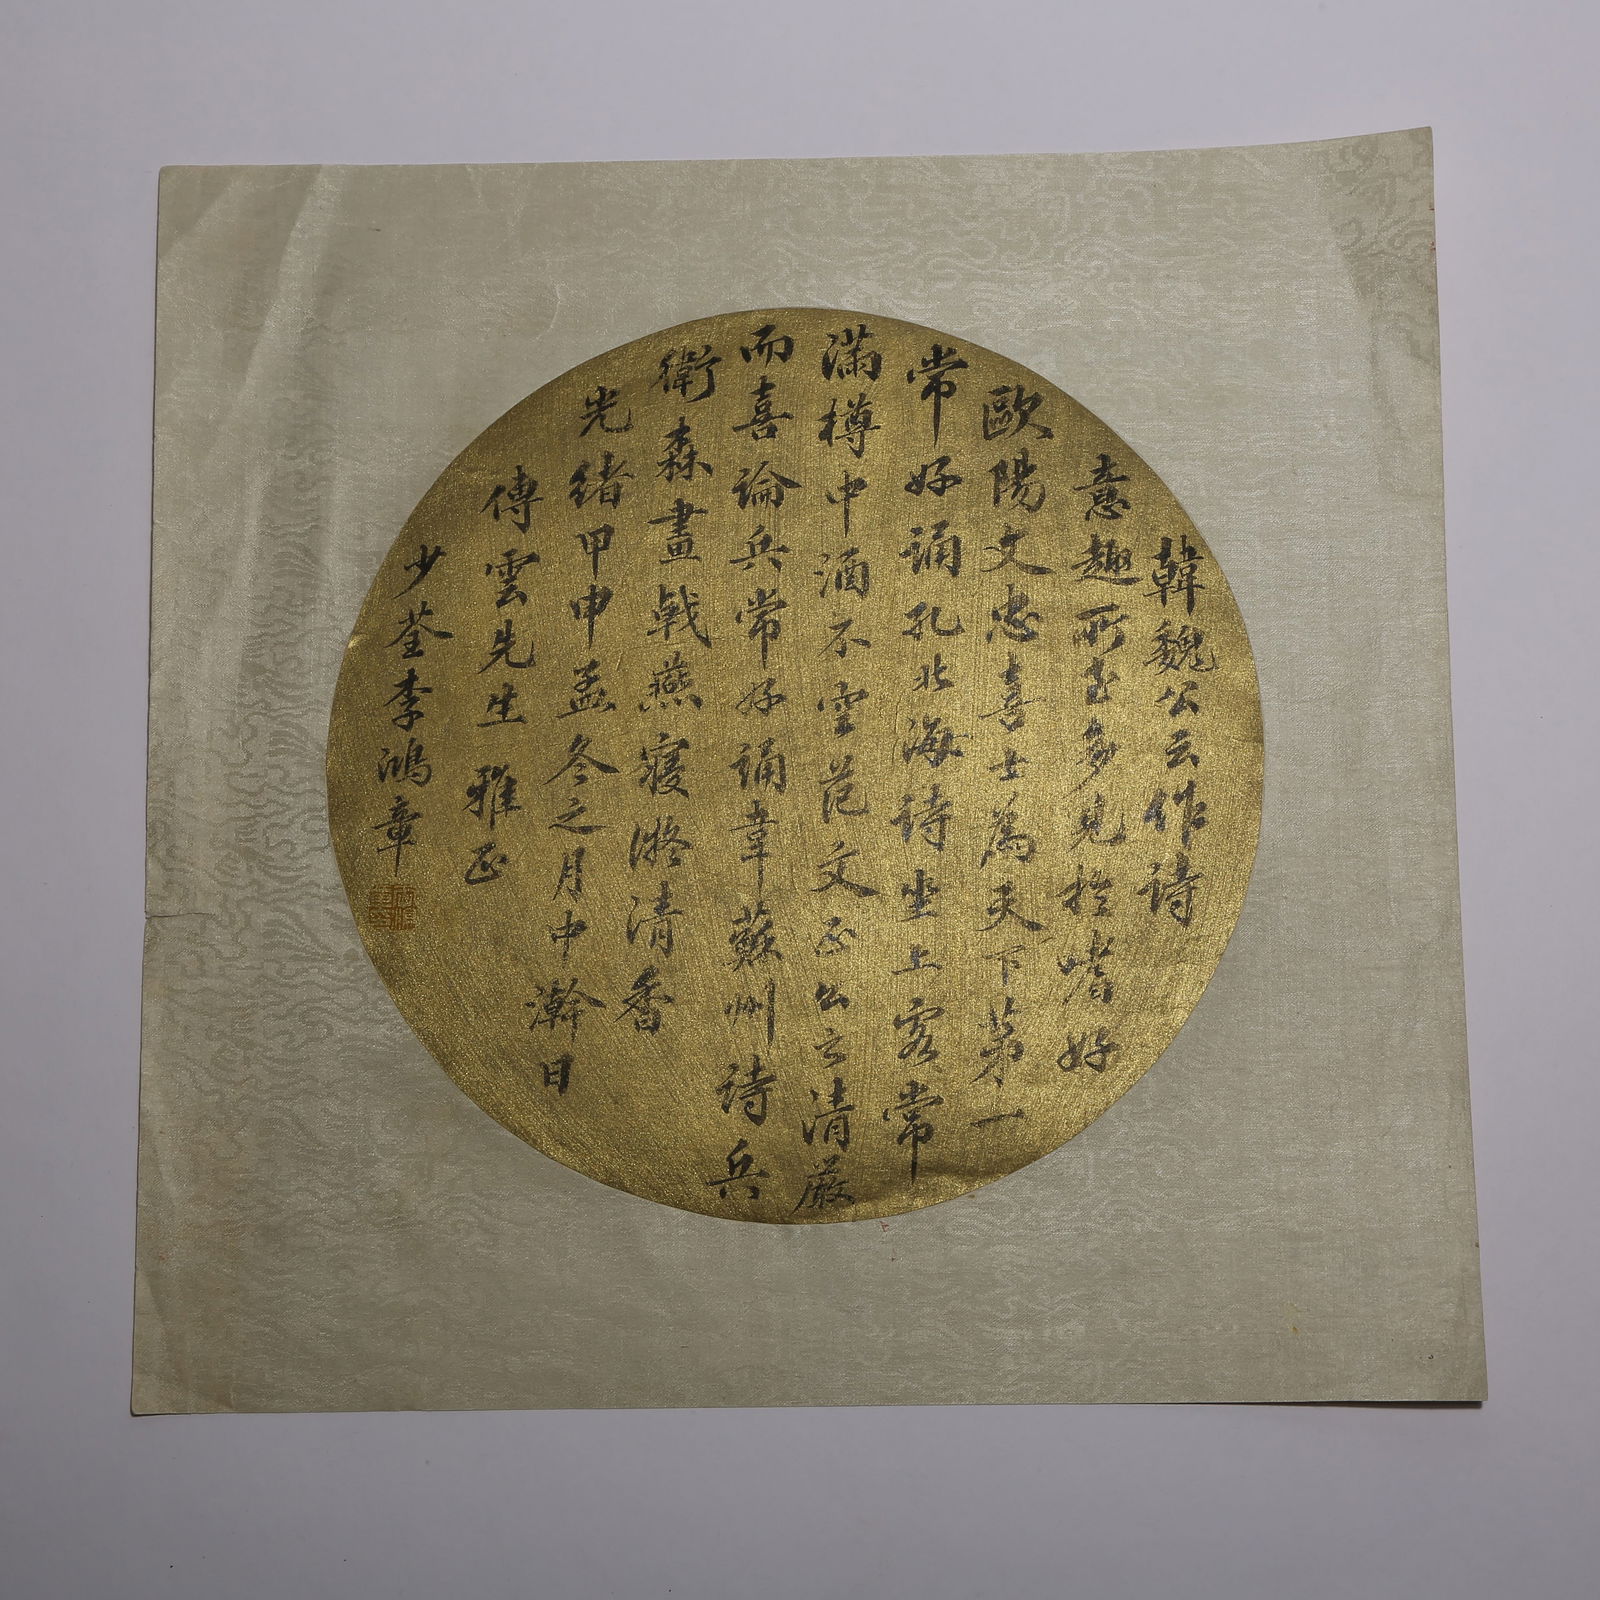 韓魏公云作詩
意趣所至多見於嗜好
歐陽文忠喜士為天下第一
常好誦孔北海詩坐上客常
滿樽中酒不空范文正公云清嚴
而喜論兵常好誦韋蘇州詩兵
衛森畫戟燕寢凝清香
光緒甲申孟冬之月中澣日
傳雲先生 雅正
少荃李鴻章